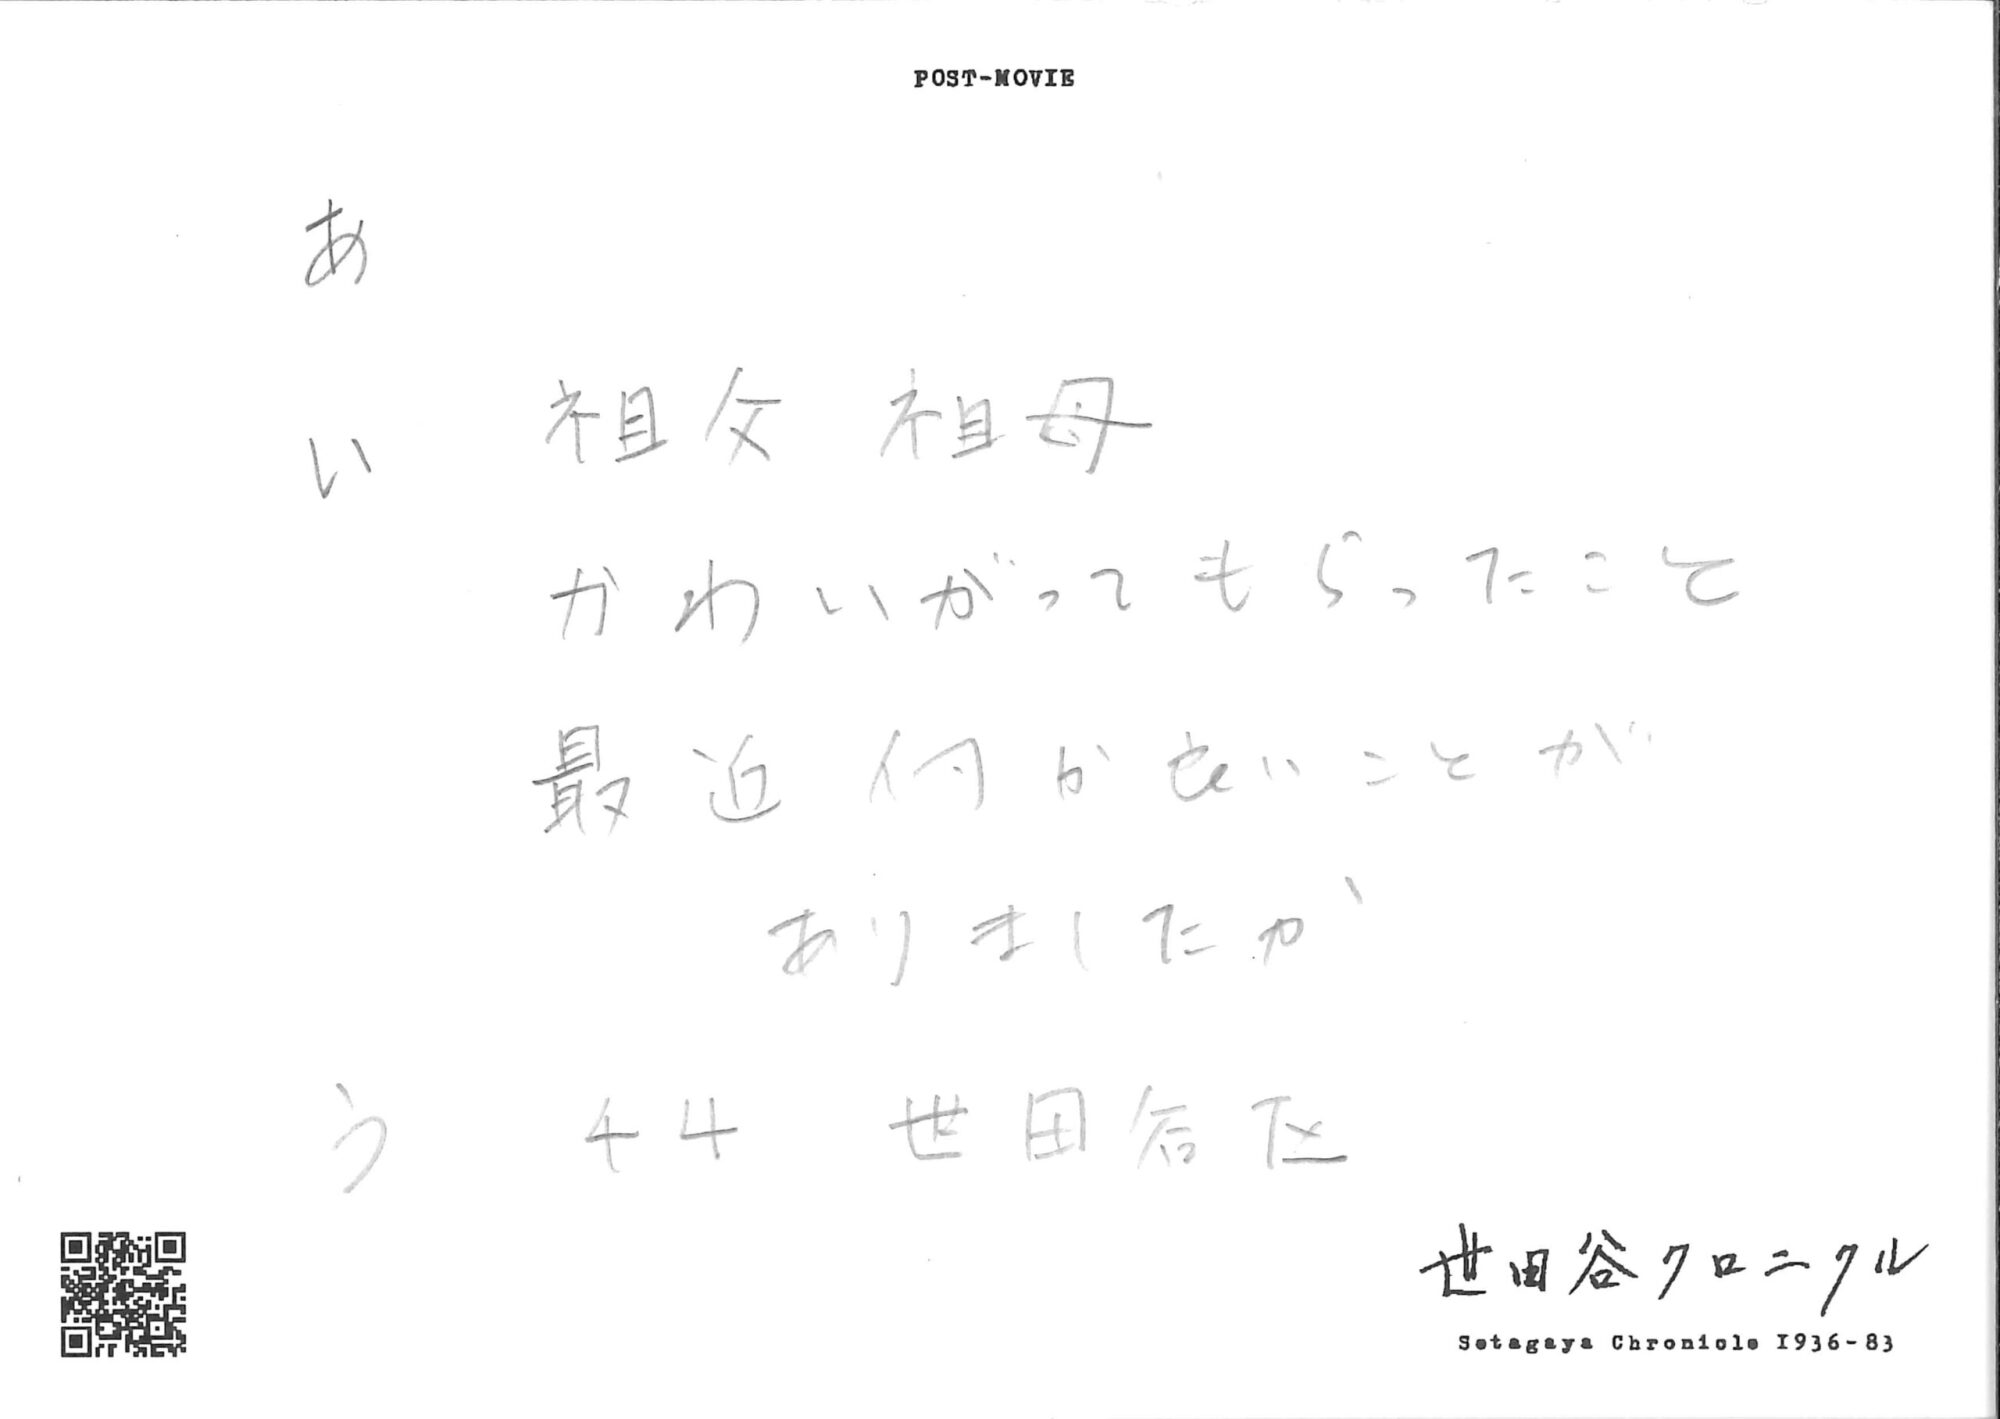 POST-MOVIE
あ
い 祖父 祖母
かわいがってもらったこと
最近何か良いことが
ありましたか
う 44 世田谷区
世田谷クロニクル
Setagaya Chronicle 1936-83